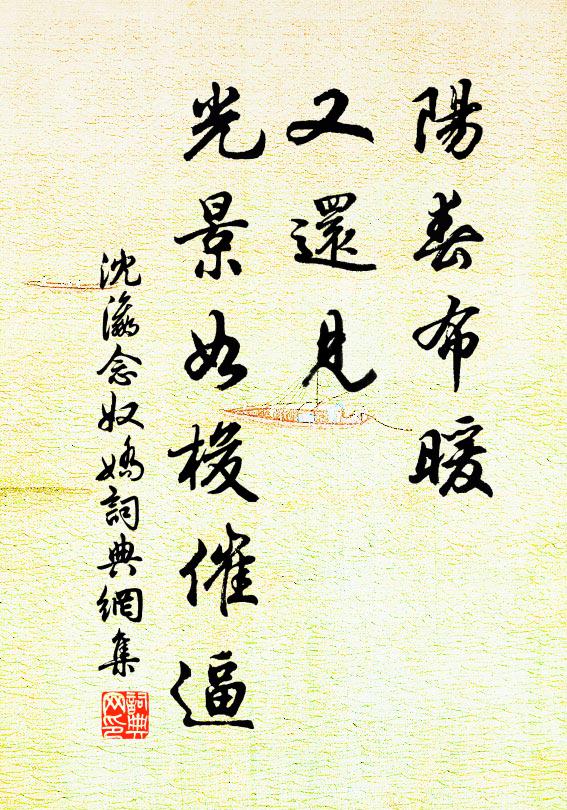 陽春布暖
又還見
光景如梭催逼
沈瀛念奴嬌詞典網集
詞典网印